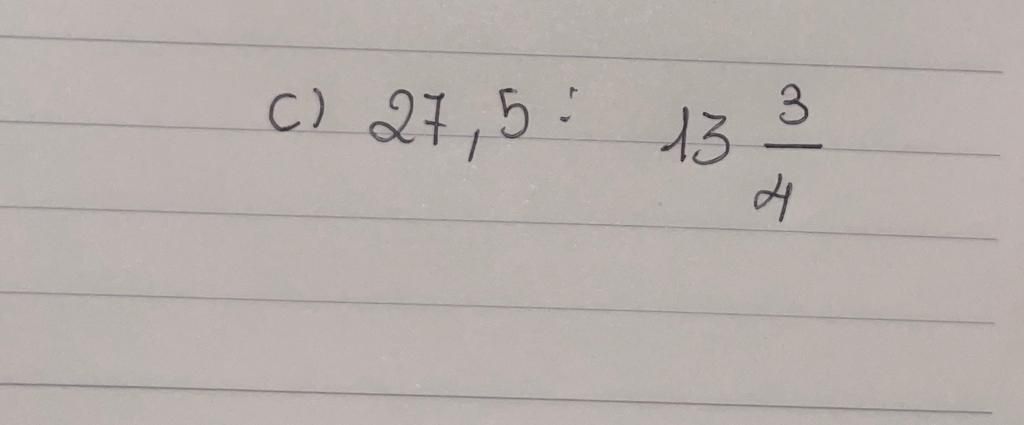 c) 27,5 : 13 3/4